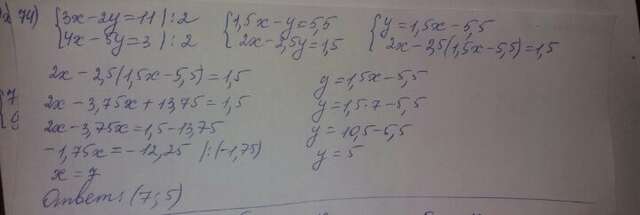 74) { 3x-2y=11 |:2 { 1,5x-y=5,5 { y=1,5x-5,5
{ 4x-5y=3 |:2 { 2x-2,5y=1,5 { 2x-2,5(1,5x-5,5)=1,5
2x-2,5(1,5x-5,5)=1,5 y=1,5x-5,5
2x-3,75x+13,75=1,5 y=1,5·7-5,5
2x-3,75x=1,5-13,75 y=10,5-5,5
-1,75x=-12,25 |:(-1,75) y=5
x=7
Ответ: (7;5)